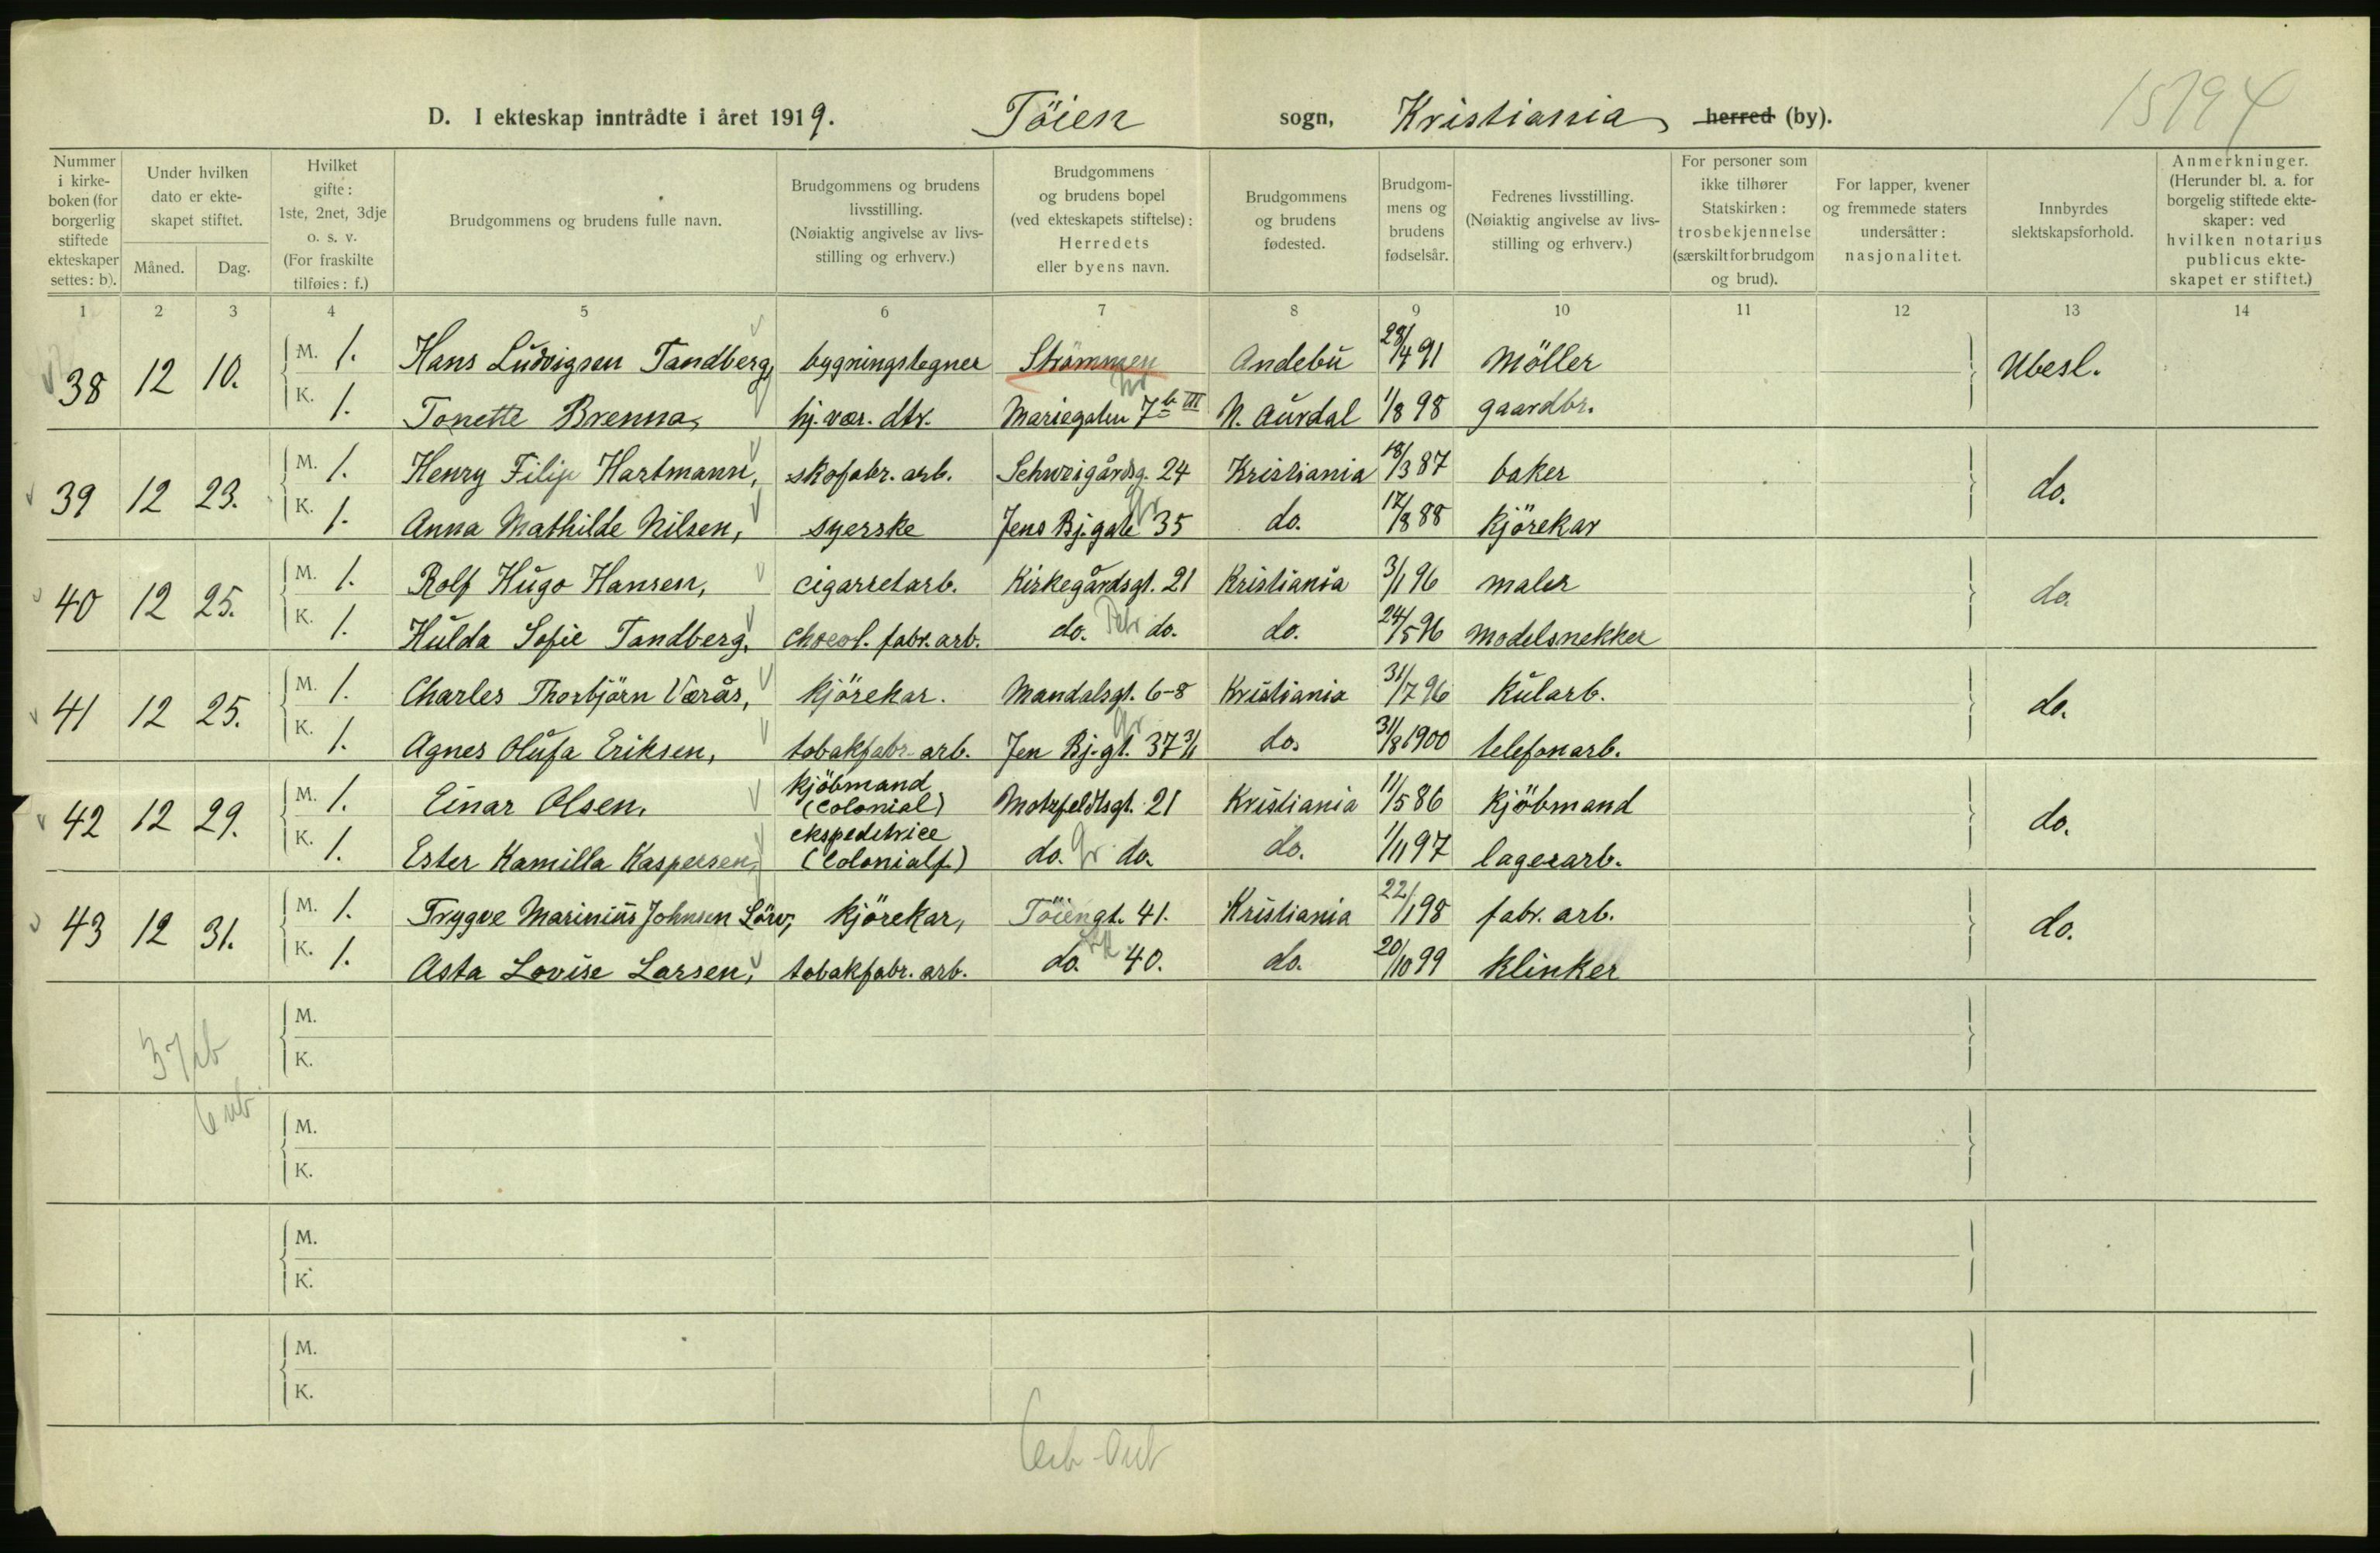 15794
D. I ekteskap inntrådte i året 1919. Töien sogn, Kristiania herred (by).
Nummer i kirke- boken (for borgerlig stiftede ekteskaper settes: b).
Under hvilken dato er ekte- skapet stiftet.
Måned. Dag.
Hvilket gifte: 1ste, 2net, 3dje o. s. v. (For fraskilte tilføies: f.)
Brudgommens og brudens fulle navn.
Brudgommens og brudens livsstilling. (Nøiaktig angivelse av livs- stilling og erhverv.)
Brudgommens og brudens bopel (ved ekteskapets stiftelse): Herredets eller byens navn.
Brudgommens og brudens fødested.
Brudgom- mens og brudens fødselsår.
Fedrenes livsstilling. (Nøiaktig angivelse av livs- stilling og erhverv.)
For personer som ikke tilhører Statskirken: trosbekjennelse (særskilt for brudgom og brud).
For lapper, kvener og fremmede staters undersåtter: nasjonalitet.
Innbyrdes slektskapsforhold.
Anmerkninger. (Herunder bl. a. for borgelig stiftede ekte- skaper: ved hvilken notarius publicus ekte- skapet er stiftet.)
1 2 3 4 5 6 7 8 9 10 11 12 13 14
38 12 10. M. 1. Hans Ludvigsen Tandberg, bygningstegner Strömmen Andebu 28/4 91 Möller Ubesl.
K. 1. Tonette Brenna, hj. vær. dtr. Mariegaten 7 b III N. Aurdal 1/8 98 gaardbr.
39 12 23. M. 1. Henry Filip Hartmann, skofabr. arb. Schweigårdsg. 24 Kristiania 18/3 87 baker do.
K. 1. Anna Mathilde Nilsen, syerske Jens Bj. gate 35 do. 17/8 88 kjörekar
40 12 25. M. 1. Rolf Hugo Hansen, cigarretarb. Kirkegårdsgt. 21 Kristiania 3/1 96 maler do.
K. 1. Hulda Sofie Tandberg, chocol. fabr. arb. do. do. do. 24/5 96 modelsnekker
41 12 25. M. 1. Charles Thorbjörn Værås, kjörekar. Mandalsgt. 6-8 Kristiania 31/7 96 kularb. do.
K. 1. Agnes Olufa Eriksen, tobakfabr. arb. Jen Bj. gt. 37 do. 31/8 1900 telefonarb.
42 12 29. M. 1. Einar Olsen, kjöbmand (Colonial) Motzfeldtsgt. 21 Kristiania 11/5 86 kjöbmand do.
K. 1. Ester Kamilla Kaspersen, ekspeditrice (Colonialf.) do. do. do. 1/11 97 lagerarb.
43 12 31. M. 1. Trygve Marinius Johnsen Lörv, kjörekar, Töiengt. 41. Kristiania 22/1 98 fabr. arb. do.
K. 1. Asta Lovise Larsen, tobakfabr. arb. do. 40. do. 20/10 99 klinker
M.
K.
M.
K.
M.
K.
M.
K.